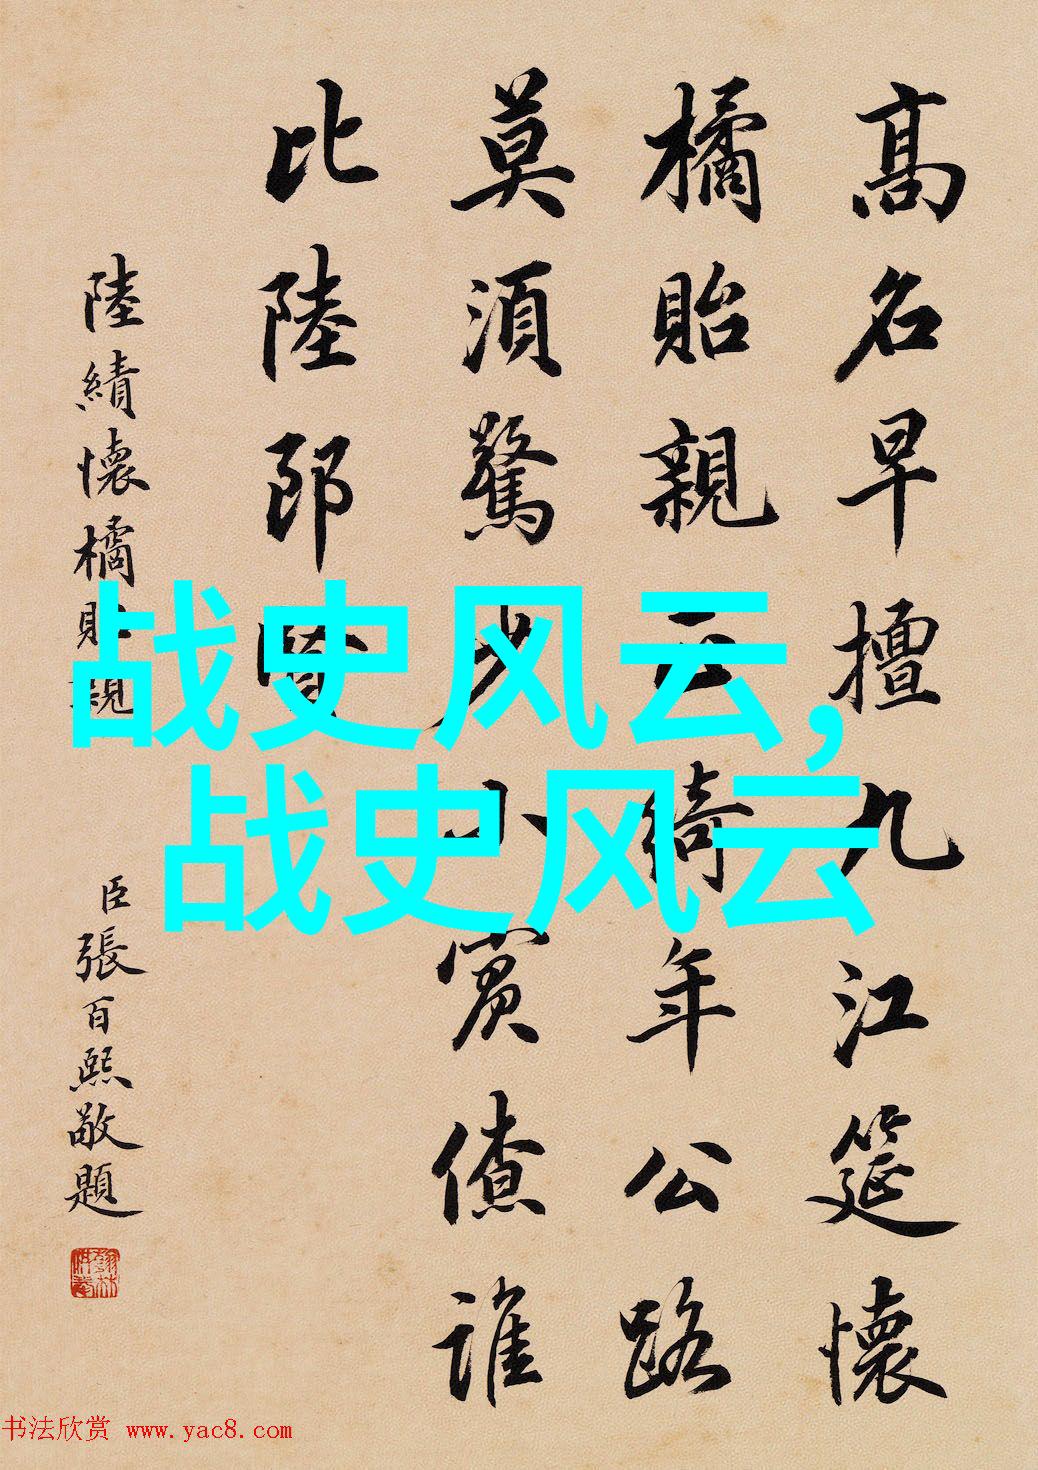 高名早擅九江筵懷
橘貽親正綺年公路
莫須驚少小賓僚誰
比陸郎賢
陸績懷橘貽親
臣張百熙敬題
战史风云,
战史风云
书法欣赏 www.yac8.com